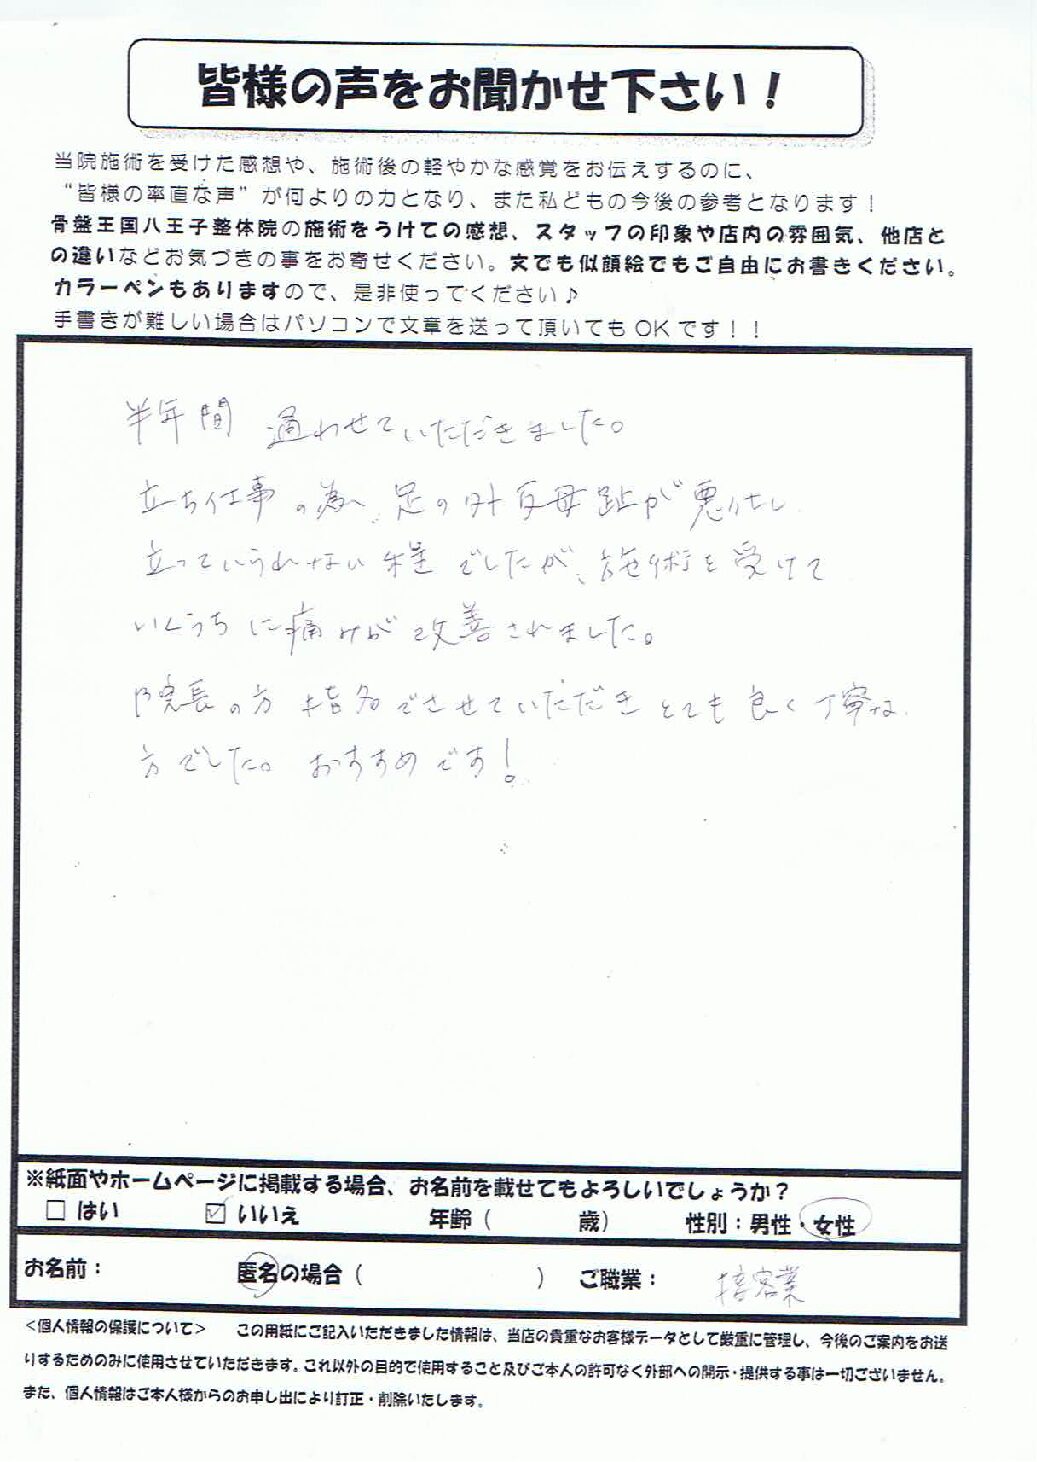 皆様の声をお聞かせ下さい！
当院施術を受けた感想や、施術後の軽やかな感覚をお伝えするのに、
“皆様の率直な声”が何よりの力となり、また私どもの今後の参考となります！
骨盤王国八王子整体院の施術をうけての感想、スタッフの印象や店内の雰囲気、他店と
の違いなどお気づきの事をお寄せください。文でも似顔絵でもご自由にお書きください。
カラーペンもありますので、是非使ってください♪
手書きが難しい場合はパソコンで文章を送って頂いてもOKです！！
半年間 通わせていただきました。
立ち仕事の為、足の外反母趾が悪化し
立っていられない程でしたが、施術を受けて
いくうちに痛みが改善されました。
院長の方指名でさせていただきとても良く丁寧な
方でした。おすすめです！
※紙面やホームページに掲載する場合、お名前を載せてもよろしいでしょうか？
□ はい ☑ いいえ 年齢（ 歳） 性別：男性・女性
お名前： 匿名の場合（ ） ご職業： 接客業
＜個人情報の保護について＞ この用紙にご記入いただきました情報は、当店の貴重なお客様データとして厳重に管理し、今後のご案内をお送
りするためのみに使用させていただきます。これ以外の目的で使用すること及びご本人の許可なく外部への開示・提供する事は一切ございません。
また、個人情報はご本人様からのお申し出により訂正・削除いたします。